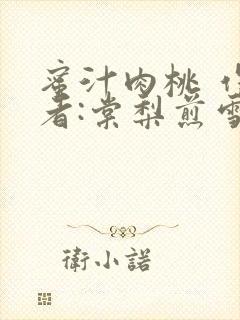 蜜汁肉桃 作
者:棠梨煎雪
衛小諾